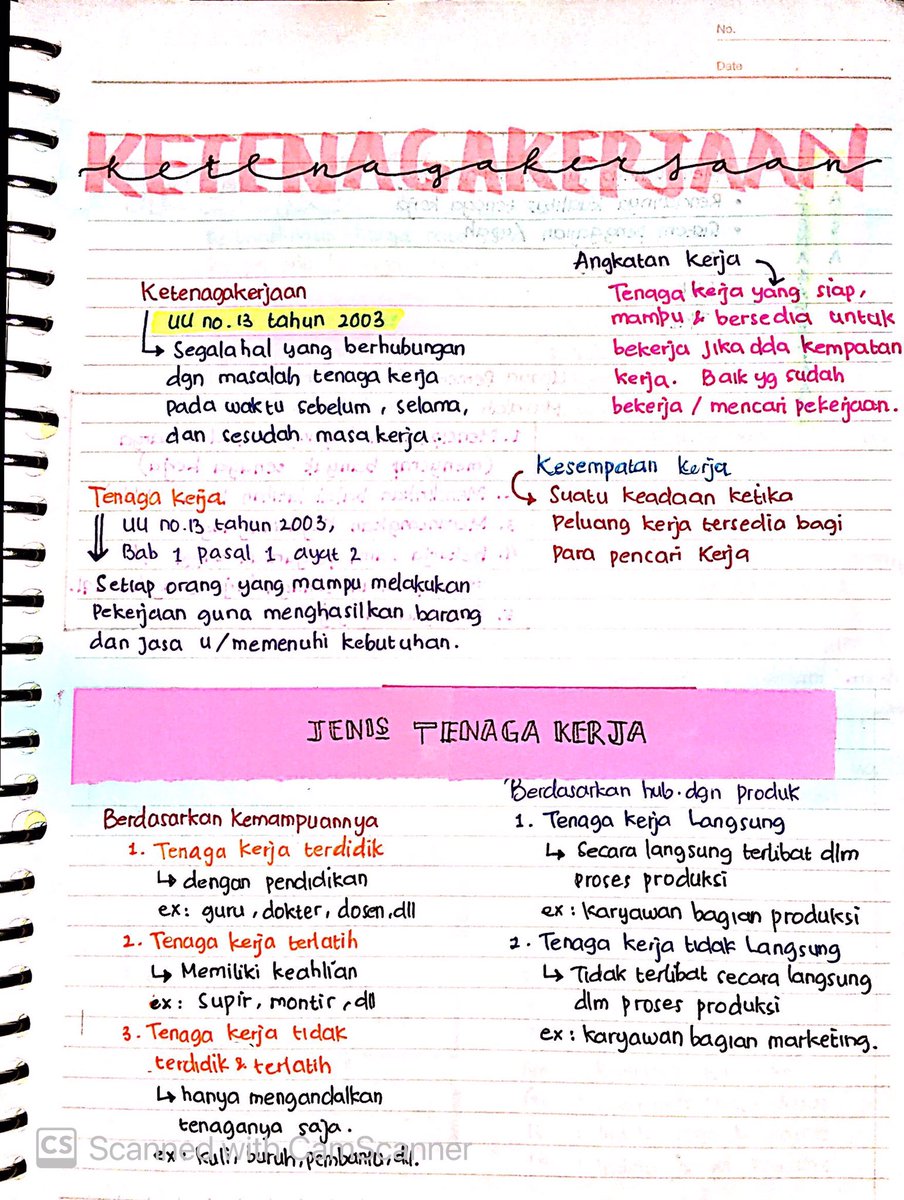 No.
Date
KETENAGAKERJAAN
ketenagakerjaan
Ketenagakerjaan
UU no.13 tahun 2003
↳ Segala hal yang berhubungan
dgn masalah tenaga kerja
pada waktu sebelum, selama,
dan sesudah masa kerja.
Tenaga Kerja
UU no.13 tahun 2003,
Bab 1 pasal 1 ayat 2
Setiap orang yang mampu melakukan
Pekerjaan guna menghasilkan barang
dan Jasa u/memenuhi kebutuhan.
Angkatan Kerja
Tenaga kerja yang siap,
mampu & bersedia untuk
bekerja Jika ada kempatan
kerja. Baik yg sudah
bekerja / mencari pekerjaan.
Kesempatan Kerja
→ Suatu keadaan ketika
Peluang kerja tersedia bagi
Para pencari Kerja
JENIS TENAGA KERJA
Berdasarkan Kemampuannya
1. Tenaga kerja terdidik
↳ dengan pendidikan
ex: guru, dokter, dosen, dll
2. Tenaga kerja terlatih
↳ Memiliki keahlian
ex: Supir, montir, dll
3. Tenaga kerja tidak
terdidik & terlatih
↳ hanya mengandalkan
tenaganya saja.
ex: kuli, buruh, pembantu, dll.
Berdasarkan hub. dgn produk
1. Tenaga kerja Langsung
↳ Secara langsung terlibat dlm
proses produksi
ex: karyawan bagian produksi
2. Tenaga kerja tidak Langsung
↳ Tidak terlibat secara langsung
dlm proses produksi
ex: karyawan bagian marketing.
CS Scanned with CamScanner